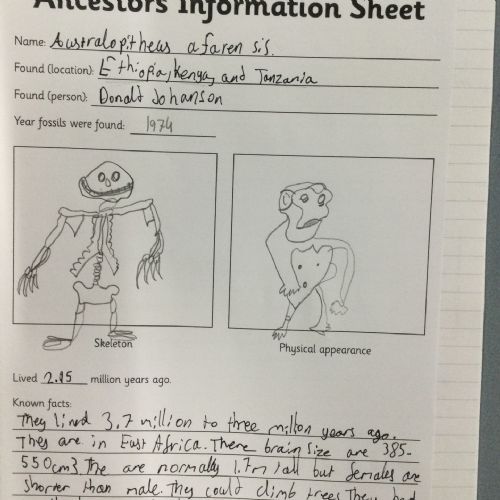 Ancestors Information Sheet
Name: Australopitheus afaren sis.
Found (location): Ethiopia, Kenya, and Tanzania
Found (person): Donald Johanson
Year fossils were found: 1974
Skeleton
Physical appearance
Lived 2.95 million years ago.
Known facts:
They lived 3.7 million to three millon years ago.
They are in East Africa. There brain size are 385-
550cm3. The are normally 1.7m tall but females are
shorter than male. They could climb trees They had